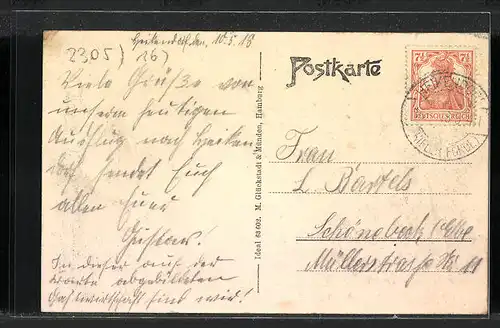 Heikendorf, den 10.5.18
2305) 26)
Postkarte
Viele Grüße von
unserm heutigen
Ausflug nach Heiken
dorf sendet Euch
allen Euer
Gustav!
In dieser auf der
Karte abgebildeten
Gastwirtschaft sind wir!
Ideal 63 602. M. Glückstadt & Münden, Hamburg
7½ 7½
DEUTSCHES REICH
Frau
L. Bartels
Schönebeck / Elbe
Müllerstrasse No 11